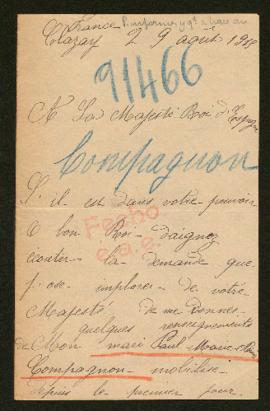 France
Clazay 29 août 1918
91466
A Sa Majesté Roi d'Espagne
Compagnon
S'il est dans votre pouvoir
O bon Roi daignez
écouter la demande que
j'ose implorer de votre
Majesté de me donner
quelques renseignements
de Mon mari Paul Marie
Compagnon mobilisé
depuis le premier jour
Fecho